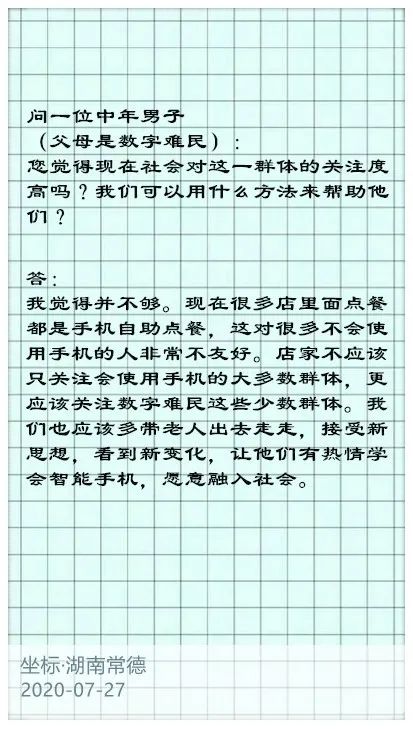 问一位中年男子
（父母是数字难民）：
您觉得现在社会对这一群体的关注度
高吗？我们可以用什么方法来帮助他
们？
答：
我觉得并不够。现在很多店里面点餐
都是手机自助点餐，这对很多不会使
用手机的人非常不友好。店家不应该
只关注会使用手机的大多数群体，更
应该关注数字难民这些少数群体。我
们也应该多带老人出去走走，接受新
思想，看到新变化，让他们有热情学
会智能手机，愿意融入社会。
坐标·湖南常德
2020-07-27